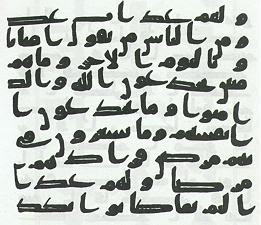 ولهم عذاب عظيم
ومن الناس من يقول امنا با
لله وباليوم الاخر وما هم
بمومنين يخدعون الله والذ
ين امنوا وما يخدعون ا
لا انفسهم وما يشعرون في
قلوبهم مرض فزادهم ا
لله مرضا ولهم عذاب ا
ليم بما كانوا يكذ